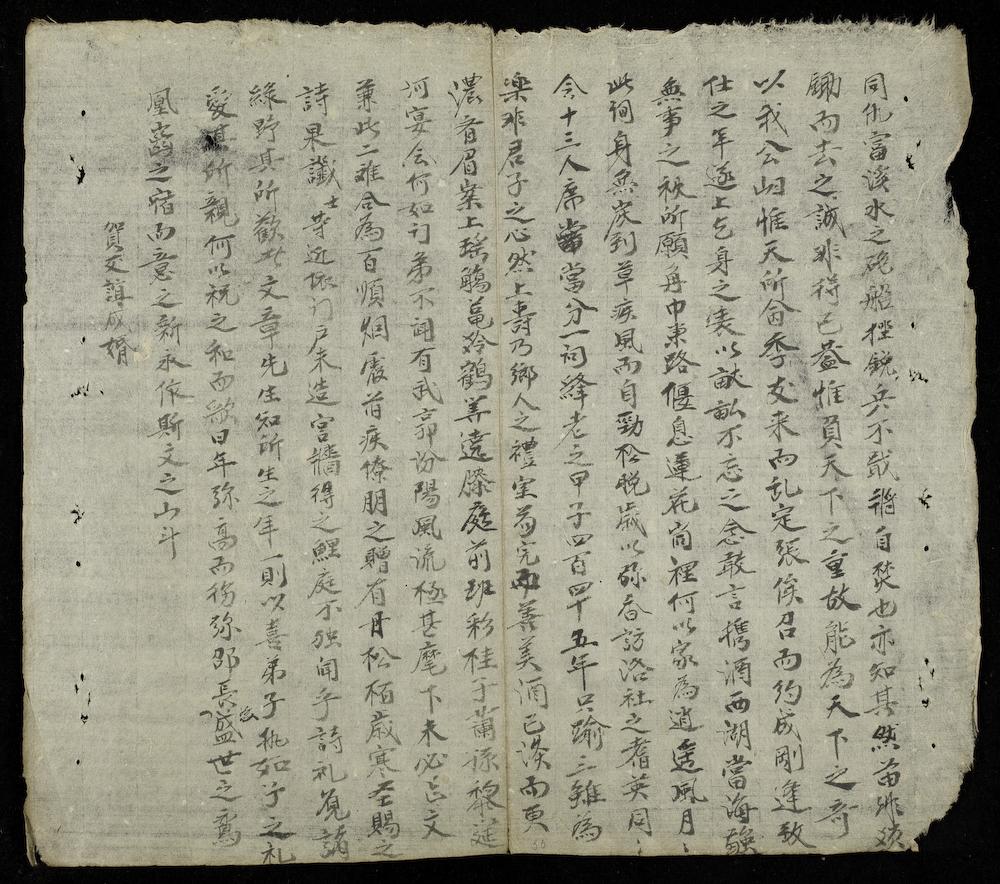 同仇富溪水之砲船挫銳兵不戢將自焚也亦知其然苗非
鋤而去之誠非得已蓋惟負天下之重故能為天下之奇
以我公歸惟天所留季友来而乱定張侯召而約成剛逢致
仕之年遂上乞身之表以畎畝不忘之念敢言携酒西湖當海
無事之秋所願角巾東路偃息蓮花尚裡何以家為逍遙風月
此殉身無灰到草疾風而自勁松晚歲以弥香訪洛社之耆英同
今十三人席當分一詞絳老之甲子四百四十五年只踰三雖為
樂非君子之心然上壽乃鄉人之禮室苟完而善美酒已滌而更
濃齊眉案上瑤觴龜鶴筭遶膝庭前班彩桂子蘭孫黎筵
河宴会何如訂弟不聞有武郭汾陽風流極甚麾下未必亡文
兼此二难合為百順烟霞首疾僚朋之贈有月松栢歲寒奎賜之
詩果讖士等近依门戶未造宮牆得之鯉庭不独聞乎詩礼覓諸
綠野其所歡於文章先生知所生之年一則以喜弟子執如予之礼
愛其所親何以祝之和而歌曰年弥高而弥邵長盛世之鸞
凰之宿而意之新永依斯文之山斗
賀交誼成婚